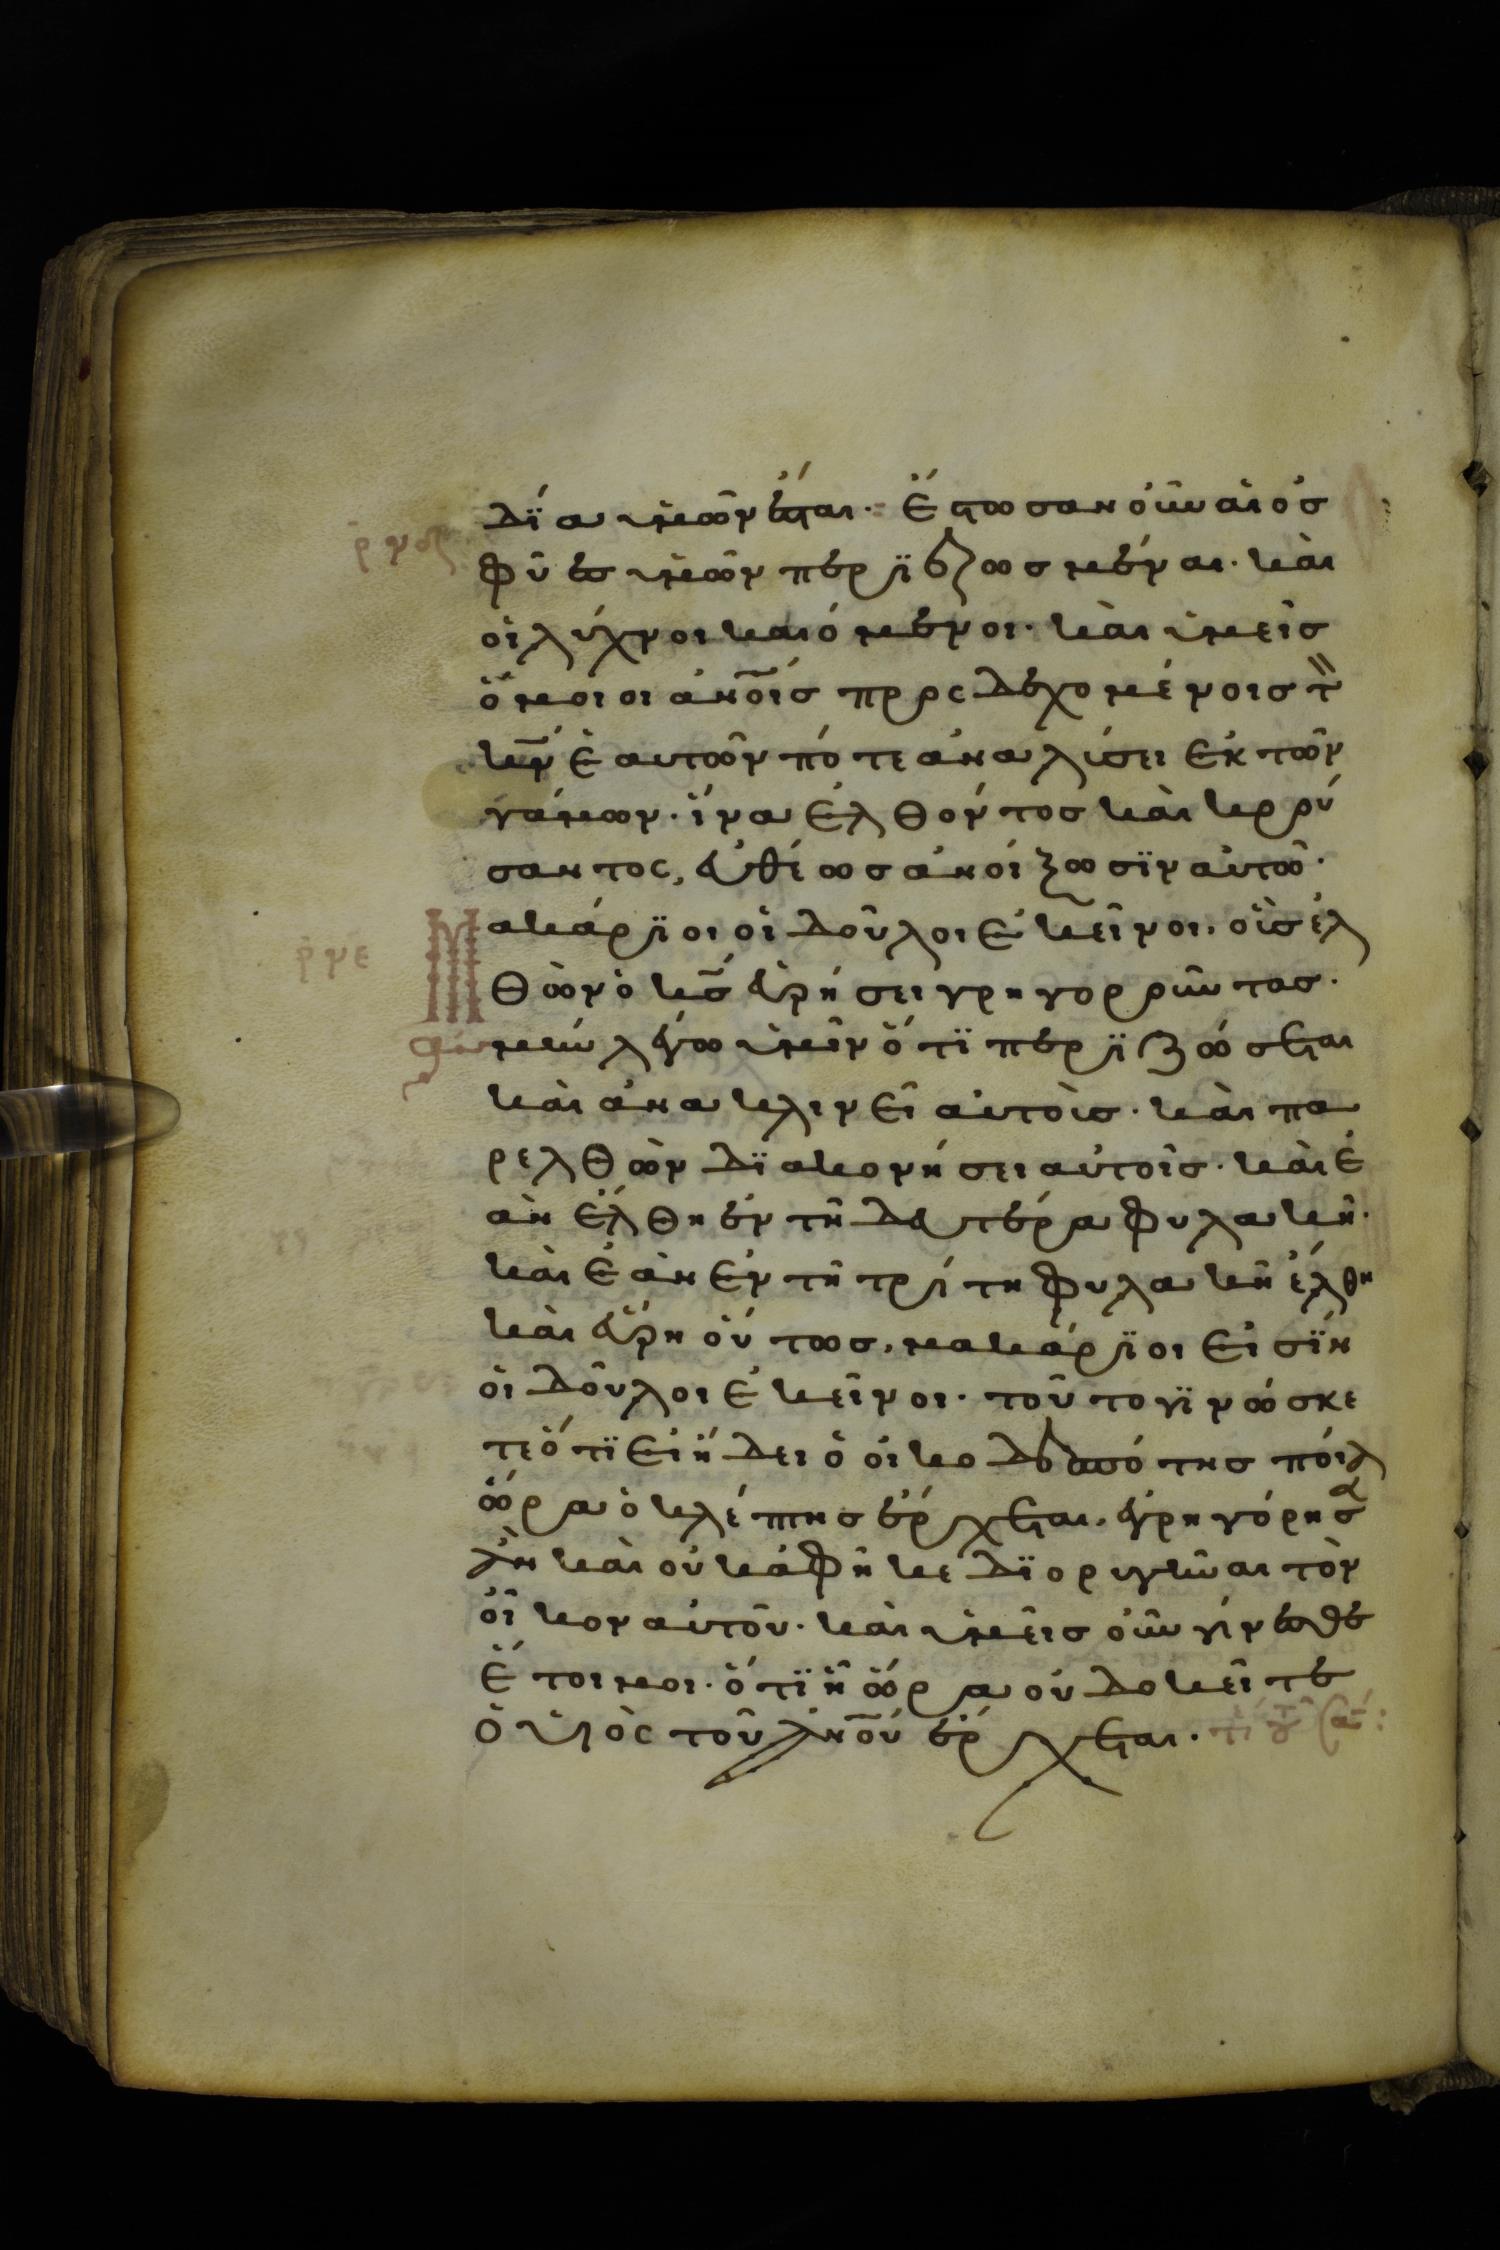 δΐα ὑμῶν ἔσται· Ἔστωσαν οὖν αἱ ὀσ
φῦες ὑμῶν περϊεζωσμέναι· καὶ
οἱ λύχνοι καιόμενοι· καὶ ὑμεῖσ
ὅμοιοι ἀν̅οισ προσδεχομένοισ τ̀
κν̅ ἑαυτῶν πότε ἀναλύσει ἐκ τῶν
γάμων· ἵνα ἐλθόντοσ καὶ κρού
σαντοσ, εὐθέωσ ἀνοίξωσϊν αὐτῶ·
Μακάρϊοι οἱ δοῦλοι ἐκεῖνοι, οὓσ ἐλ
θὼν ὁ κσ̅ εὑρήσει γρηγοροῦντασ·
ἀμὴν λέγω ὑμῖν ὅτϊ περϊζώσεται
καὶ ἀνακλινεῖ αὐτοὺσ· καὶ πα
ρελθὼν δϊακονήσει αὐτοῖσ· καὶ ἐ
ὰν ἔλθη ἐν τῆ δευτέρα φυλακῆ·
καὶ ἐὰν ἐν τῆ τρίτη φυλακῆ ἔλθη
καὶ εὕρη οὕτωσ, μακάρϊοι εἰσΐν
οἱ δοῦλοι ἐκεῖνοι· τοῦτο γϊνώσκε
τε ὅτϊ εἰ ἤδει ὁ οἰκοδεσπότησ ποίᾳ
ὥρα ὁ κλέπτησ ἔρχεται, ἐγρηγόρησ
ἂν καὶ οὐκ ἀφῆκε δϊορυγῆναι τὸν
οἶκον αὐτοῦ· καὶ ὑμεῖσ οὖν γίνεσθε
ἕτοιμοι· ὅτϊ ἧ ὥρα οὐ δοκεῖτε
ὁ υἱὸσ τοῦ ἀν̅ου ἔρχεται·
ρνε